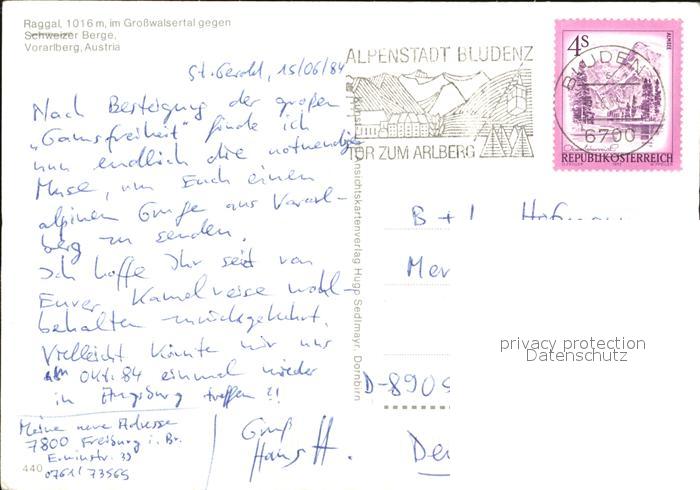 Raggal, 1016 m, im Großwalsertal gegen
Schweizer Berge,
Vorarlberg, Austria
St. Gerold, 15/06/84
Nach Besteigung der großen
„Gamsfreiheit" finde ich
nun endlich die notwendige
Muse, um Euch einen
alpinen Gruße aus Vorarl-
berg zu senden.
Ich hoffe Ihr seit von
Eurer Kamelreise wohl-
behalten zurückgekehrt.
Vielleicht könnte wir uns
im Okt. 84 einmal wieder
in Augsburg treffen?!
Meine neue Adresse
7800 Freiburg i. Br.
Erwinstr. 33
0761/73565
440
Gruß
Hans H.
ALPENSTADT BLUDENZ
TOR ZUM ARLBERG
BLUDENZ
6700
4S
ALMSEE
REPUBLIK ÖSTERREICH
Ansichtskartenverlag Hugo Sedlmayr, Dornbirn
B + I
D-8905
privacy protection
Datenschutz